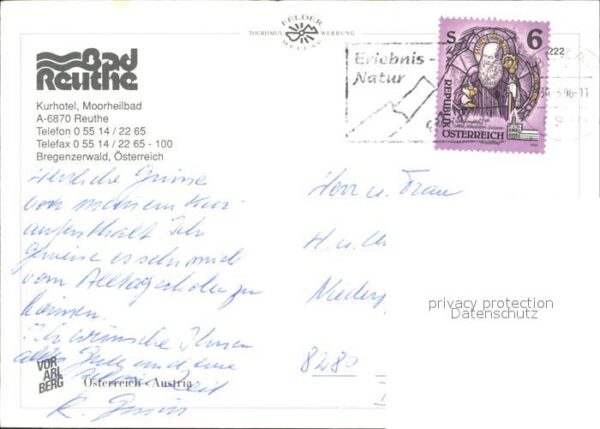 FELDER
TOURISMUS WERBUNG
MELLAU
Bad
Reuthe
Kurhotel, Moorheilbad
A-6870 Reuthe
Telefon 0 55 14 / 22 65
Telefax 0 55 14 / 22 65 - 100
Bregenzerwald, Österreich
Erlebnis -
Natur
S 6
REPUBLIK
ÖSTERREICH
222
96-11
Herzliche Grüsse
von meinem Kur
aufenthalt. Ich
geniesse es sehr mich
vom Alltag erholen zu
können.
Ich wünsche Ihnen
alles Gute und eine
Zeit
K.
Herr u. Frau
H. u.
8280
VOR
ARL
BERG
Österreich - Austria
privacy protection
Datenschutz